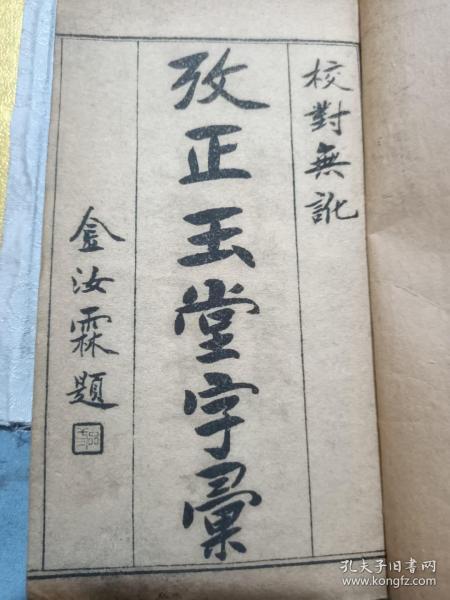 校對無訛
攷正玉堂字彙
金汝霖題
孔夫子旧书网
www.kongfz.com